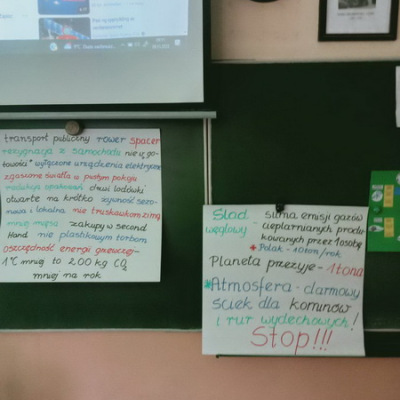 transport publiczny rower spacer
rezygnacja z samochodu nie w go-
towości" wyłączone urządzenia elektryczne
zgaszone światła w pustym pokoju
redukcja opakowań drzwi lodówki
otwarte na krótko żywność sezo-
nowa i lokalna nie truskawkom zimą
mniej mięsa zakupy w second
Hand nie plastikowym torbom
oszczędność energii grzewczej-
1°C mniej to 200 kg CO2
mniej na rok
Ślad - suma emisji gazów
węglowy - cieplarnianych produ-
kowanych przez 1 osobę
Polak - 10 ton/rok
Planeta przeżyje - 1 tona
*Atmosfera - darmowy
ściek dla kominów
i rur wydechowych!
Stop!!!